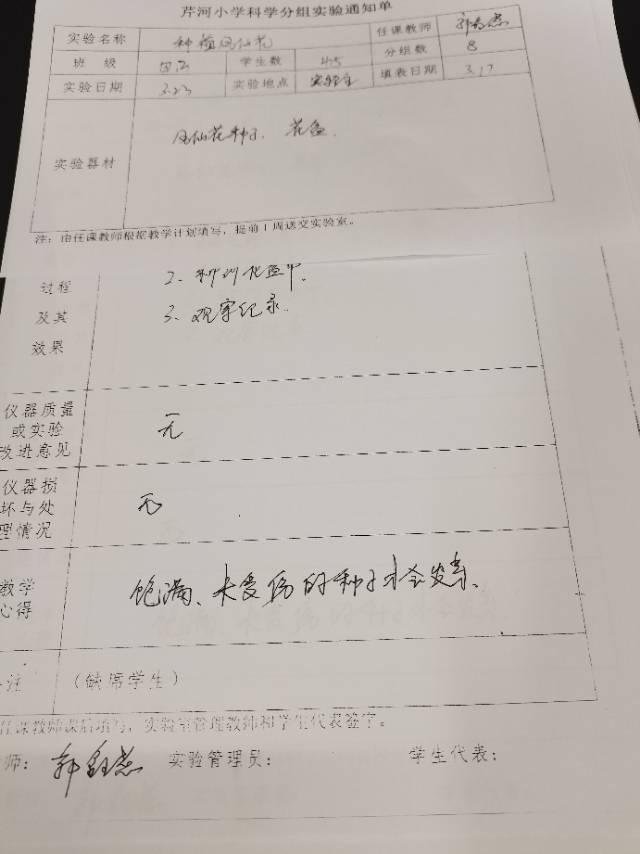 芹河小学科学分组实验通知单
实验名称 种植凤仙花 任课教师
班 级 四 学生数 45 分组数 8
实验日期 3.23 实验地点 实验室 填表日期 3.17
实验器材 凤仙花种子、花盆.
注：由任课教师根据教学计划填写，提前1周送交实验室。
过程 2、种到花盆中.
及其 3、观察记录.
效果
仪器质量
或实验 无
改进意见
仪器损
坏与处 无
理情况
教学 饱满、未受伤的种子才会发芽、
心得
注 （缺席学生）
任课教师课后填写，实验室管理教师和学生代表签字。
师： 实验管理员： 学生代表：